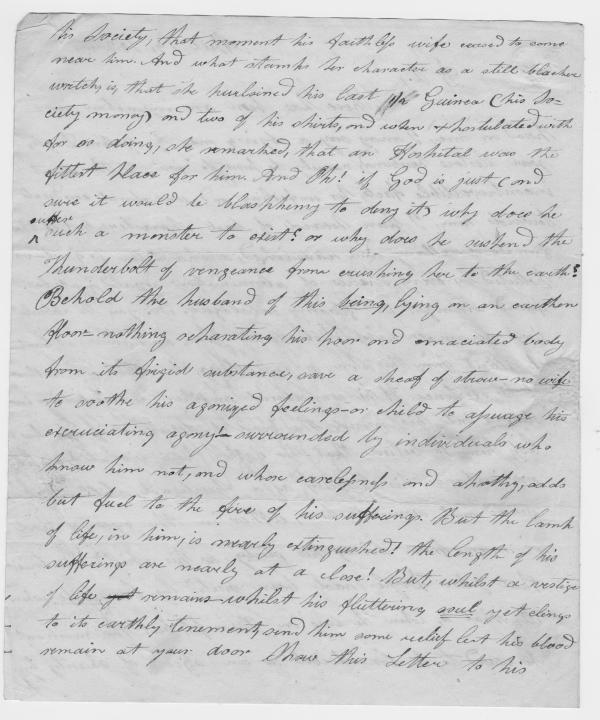 his Society, that moment his faithless wife ceased to come
near him. And what stamps her character as a still blacker
wretch, is, that she purloined his last 1/2 Guinea (his So-
ciety money) and two of his shirts, and when expostulated with
for so doing, she remarked, that an Hospital was the
fittest place for him. And Oh! if God is just (and
sure it would be blasphemy to deny it) why does he
suffer
^ such a monster to exist? or why does he suspend the
Thunderbolt of vengeance from crushing her to the earth?
Behold the husband of this being, lying on an earthen
floor - nothing separating his poor and emaciated body
from its frigid substance, save a sheaf of straw - no wife
to soothe his agonized feelings - or child to assuage his
excruciating agony! - surrounded by individuals who
know him not, and whose carelessness and apathy, adds
but fuel to the fire of his sufferings. But the lamp
of life, in him, is nearly extinguished! the length of his
sufferings are nearly at a close! But, whilst a vestige
of life yet remains - whilst his fluttering soul yet clings
to its earthly tenement, send him some relief lest his blood
remain at your door Show this Letter to his